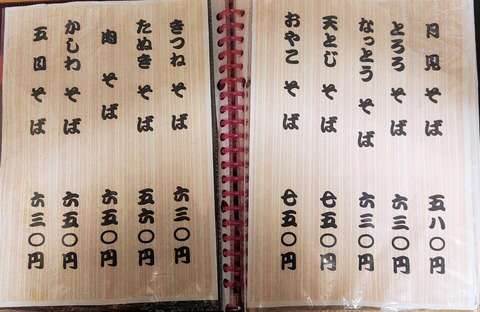 月見そば 五八〇円
とろろそば 六三〇円
なっとうそば 六三〇円
天とじそば 七五〇円
おやこそば 七五〇円
きつねそば 六三〇円
たぬきそば 五六〇円
肉そば 六五〇円
かしわそば 六五〇円
五目そば 六三〇円